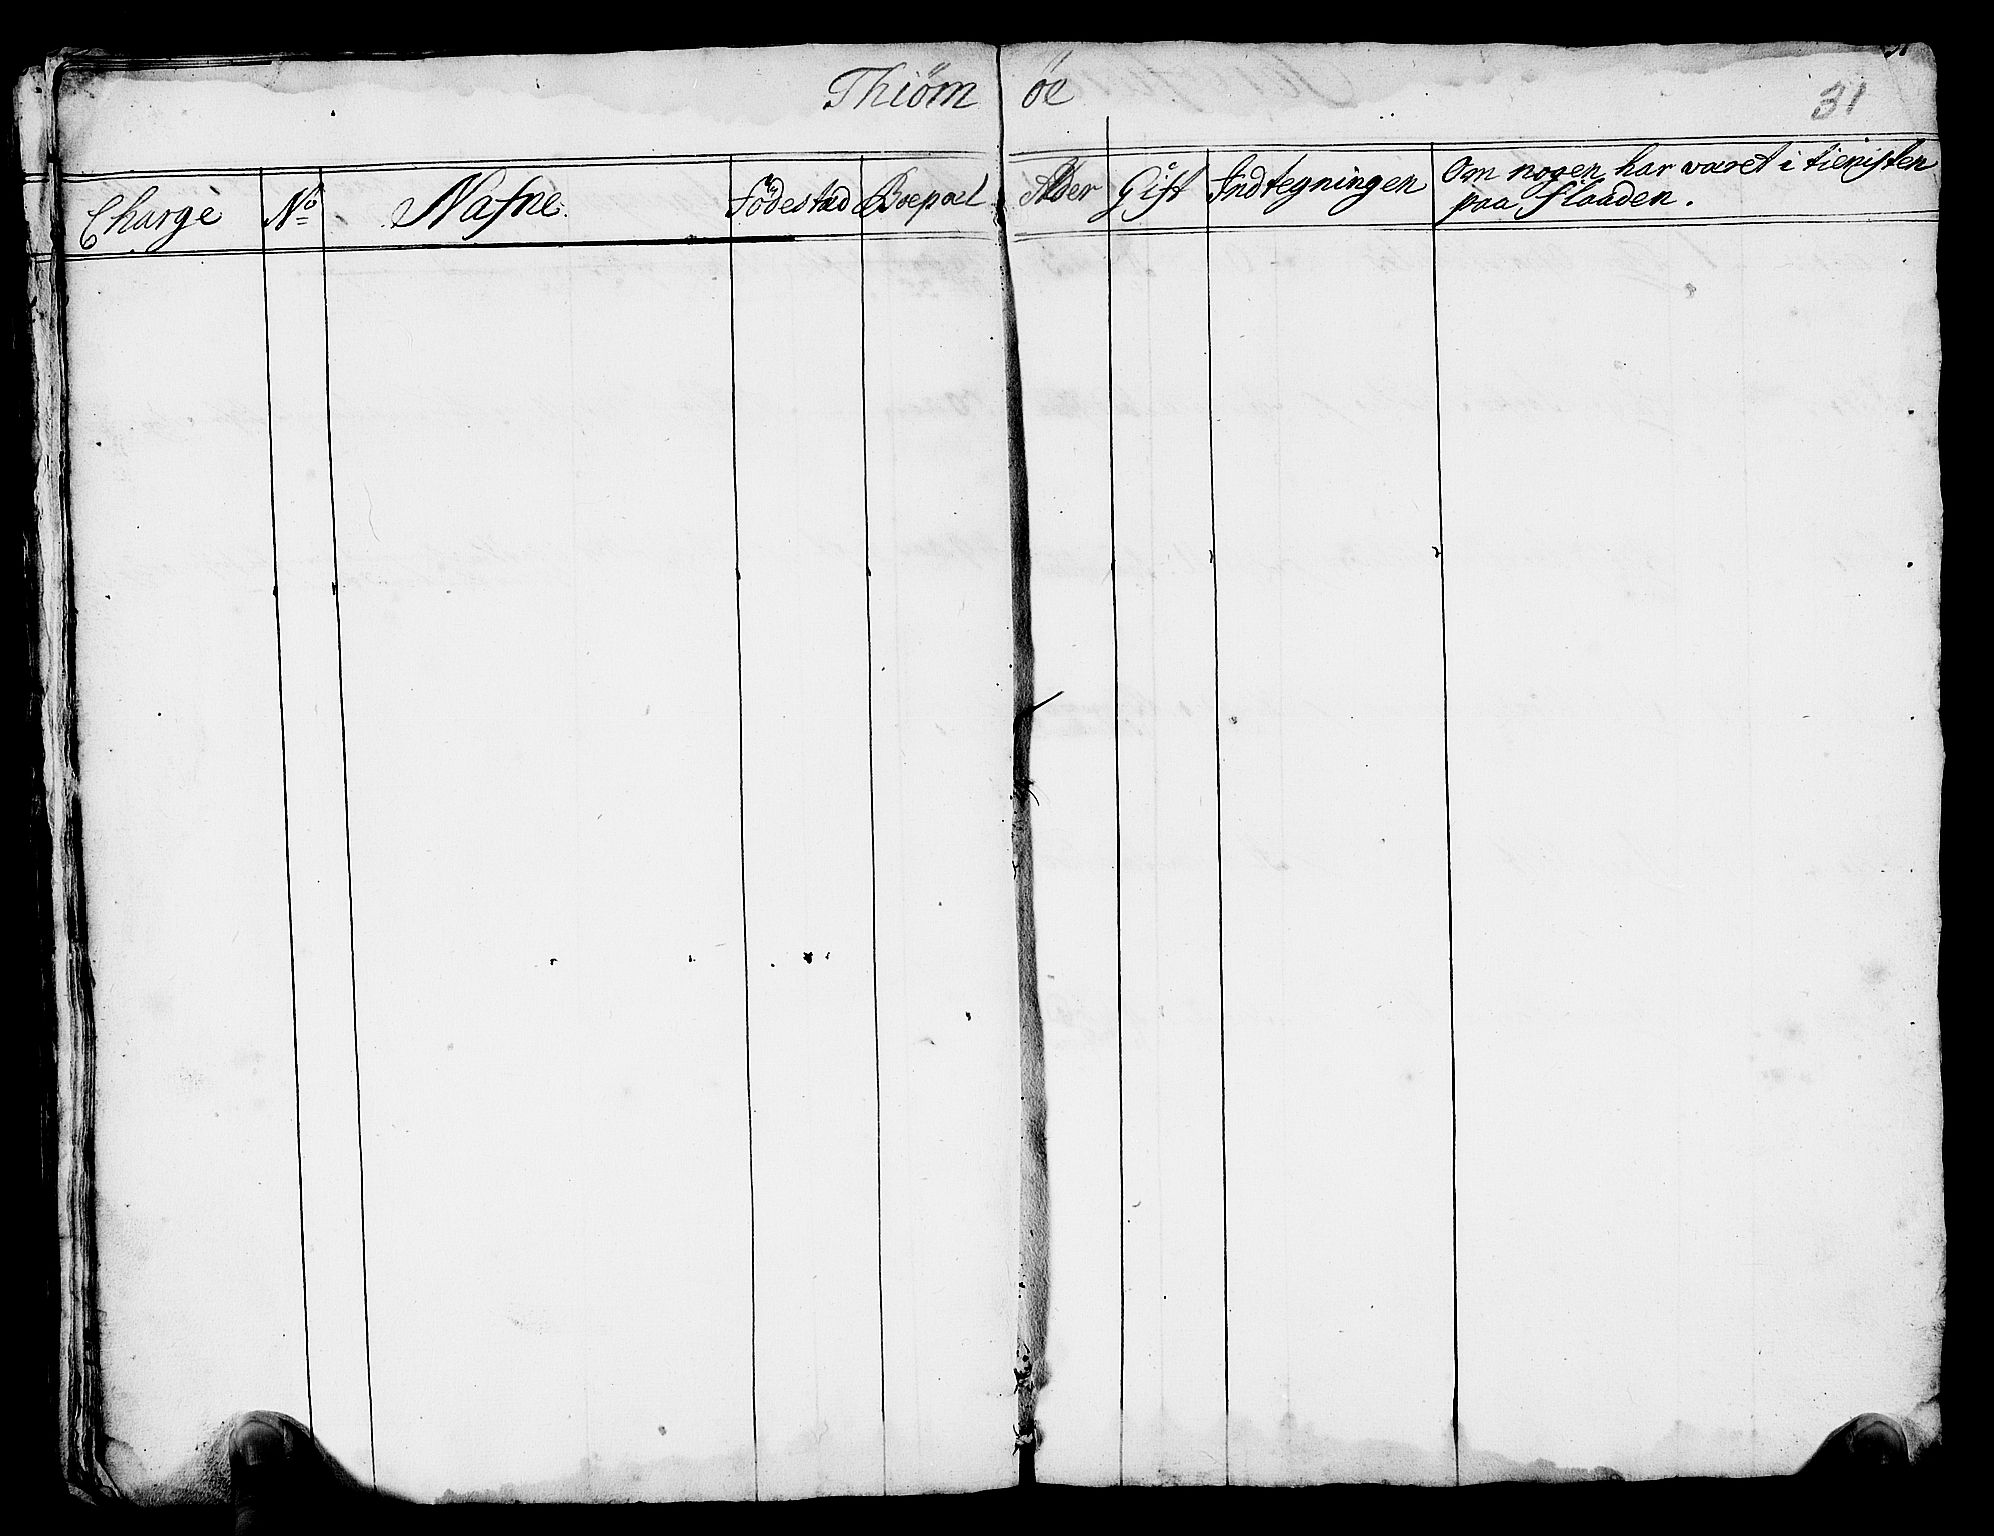 Thiöm öe
31
Charge No Nafne Födestæd Boepæl Alder Gift Indtegningen Om nogen har været i tienisten
paa Flaaden.